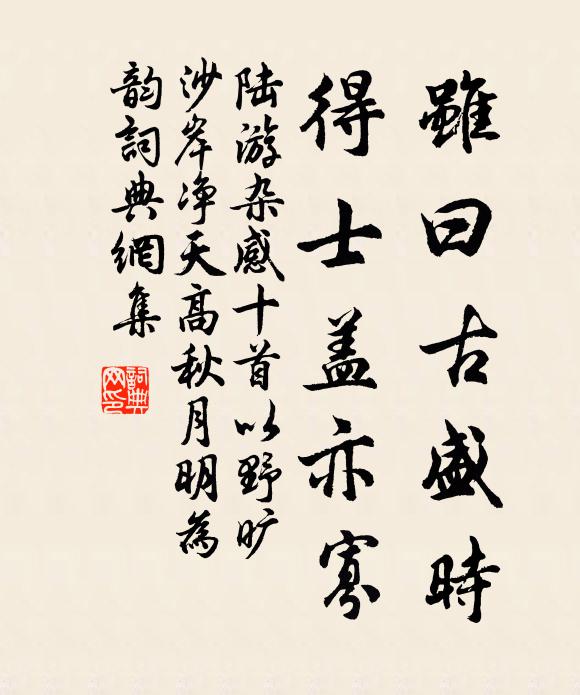 雖曰古盛時
得士盖亦寡
陆游杂感十首以野旷
沙岸净天高秋月明為
韵詞典網集
詞典網印